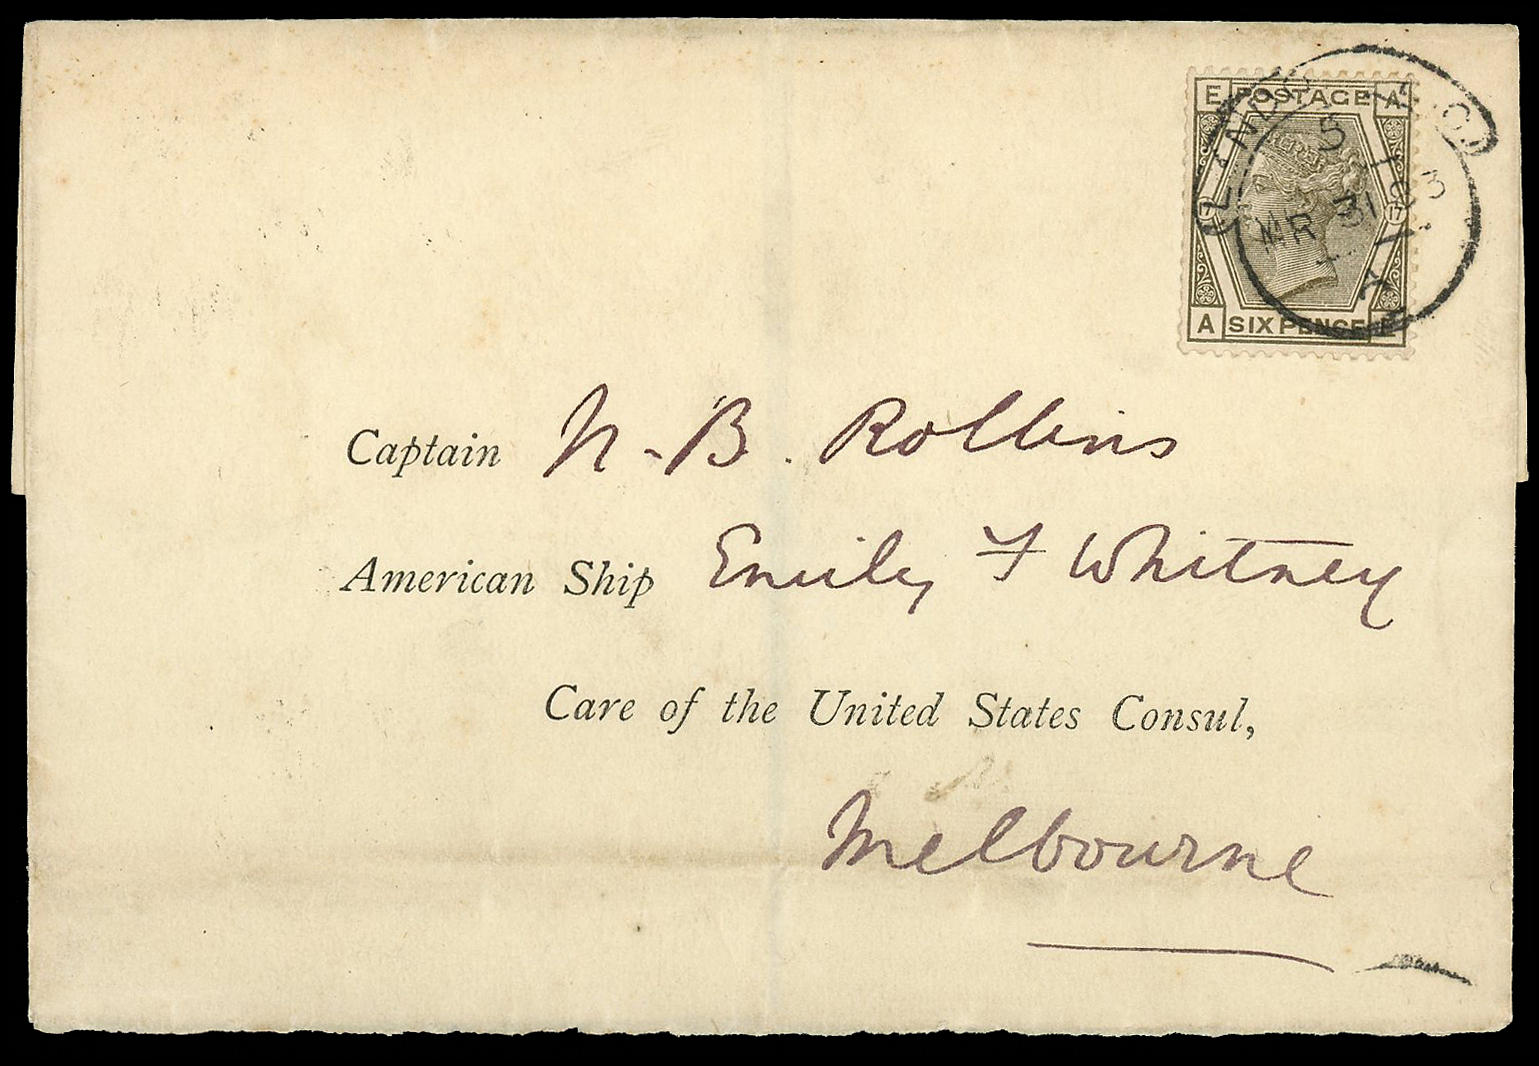 E POSTAGE A
17 17
A SIX PENCE E
S
MR 31
3
Captain N. B. Rollins
American Ship Emily F Whitney
Care of the United States Consul,
Melbourne